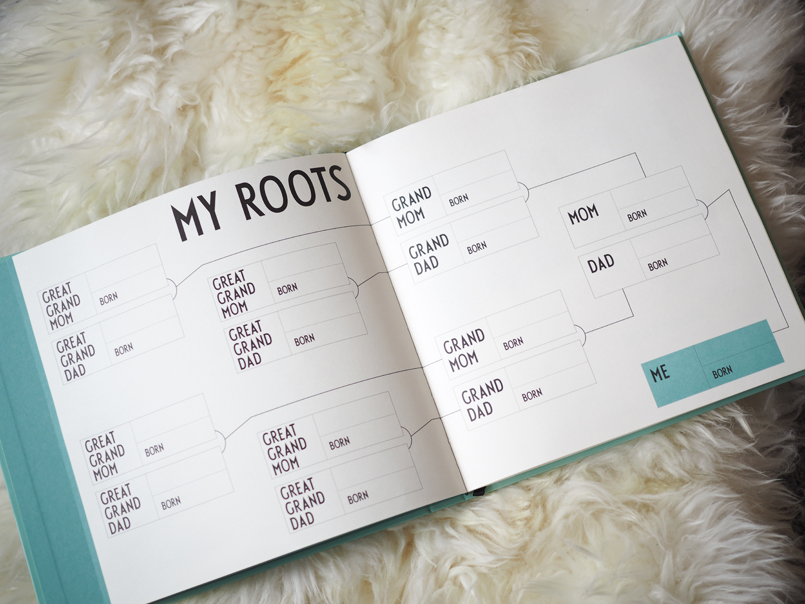 MY ROOTS
GREAT
GRAND
MOM
BORN
GREAT
GRAND
DAD
BORN
GREAT
GRAND
MOM
BORN
GREAT
GRAND
DAD
BORN
GREAT
GRAND
MOM
BORN
GREAT
GRAND
DAD
BORN
GREAT
GRAND
MOM
BORN
GREAT
GRAND
DAD
BORN
GRAND
MOM
BORN
GRAND
DAD
BORN
GRAND
MOM
BORN
GRAND
DAD
BORN
MOM
BORN
DAD
BORN
ME
BORN